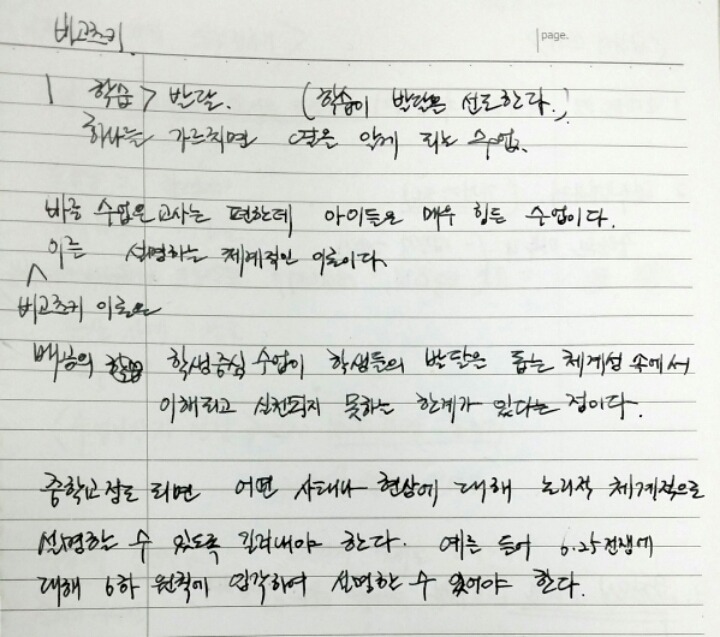 비고츠키.
page.
1 학습 > 발달. (학습이 발달을 선도한다.)
하나를 가르치면 열을 알게 되는 수업.
배움 수업은 교사는 편한데 아이들은 매우 힘든 수업이다.
이를 설명하는 체계적인 이론이다.
비고츠키 이론은
배움의 학생중심 수업이 학생들의 발달을 돕는 체계성 속에서
이해되고 실천되지 못하는 한계가 있다는 점이다.
중학교 정도 되면 어떤 사태나 현상에 대해 논리적 체계적으로
설명할 수 있도록 길러내야 한다. 예를 들어 6.25 전쟁에
대해 6하 원칙에 입각하여 설명할 수 있어야 한다.